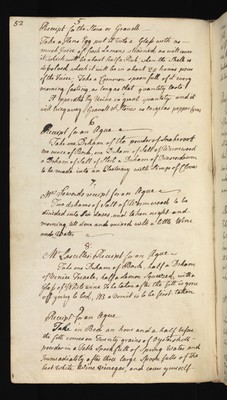 52
5
Receipt for the Stone or Gravell
Take a stone Egg put it into a Glass with as
much Juice of fresh Lemons strained as will cover
it which will be about half a Pint when the Shell is
dissolved which it will be in about 24 hours pour
of the Juice, Take a Common spoon full of it every
morning fasting as long as that quantity lasts
It opperates by Urine in great quantity and if
not bringing Gravell or Stones
6
Receipt for an Ague
Take one Dicham of the powder of Snakeroot
an ounce of Bark, one Dicham of Salt of Wormwood
a Dicham of Salt of Steel a Dicham of
to be made into an Electuary with Sirup of Cloves
7
Mrs receipt for an Ague
Two dichams of Salt of Wormwood to be
divided into Six doses, and taken night and
morning till done and mixed with a little Wine
and Water
8
Mr Receipt for an Ague
Take one Dicham of Bark, half a Dicham
of Venice Treacle, half a Lemon Squeezed, with a
Glass of White wine to be taken after the fitt is gone
off going to bed, NB a Vomit is to be first taken
9
Receipt for an Ague
Take in Bed an hour and a half before
the fitt comes on Twenty grains of
powder in a Table Spoonfull of Spring Water and
Immediately after three large Spoonfulls of the
best White Wine Vinegar, and cover yourself